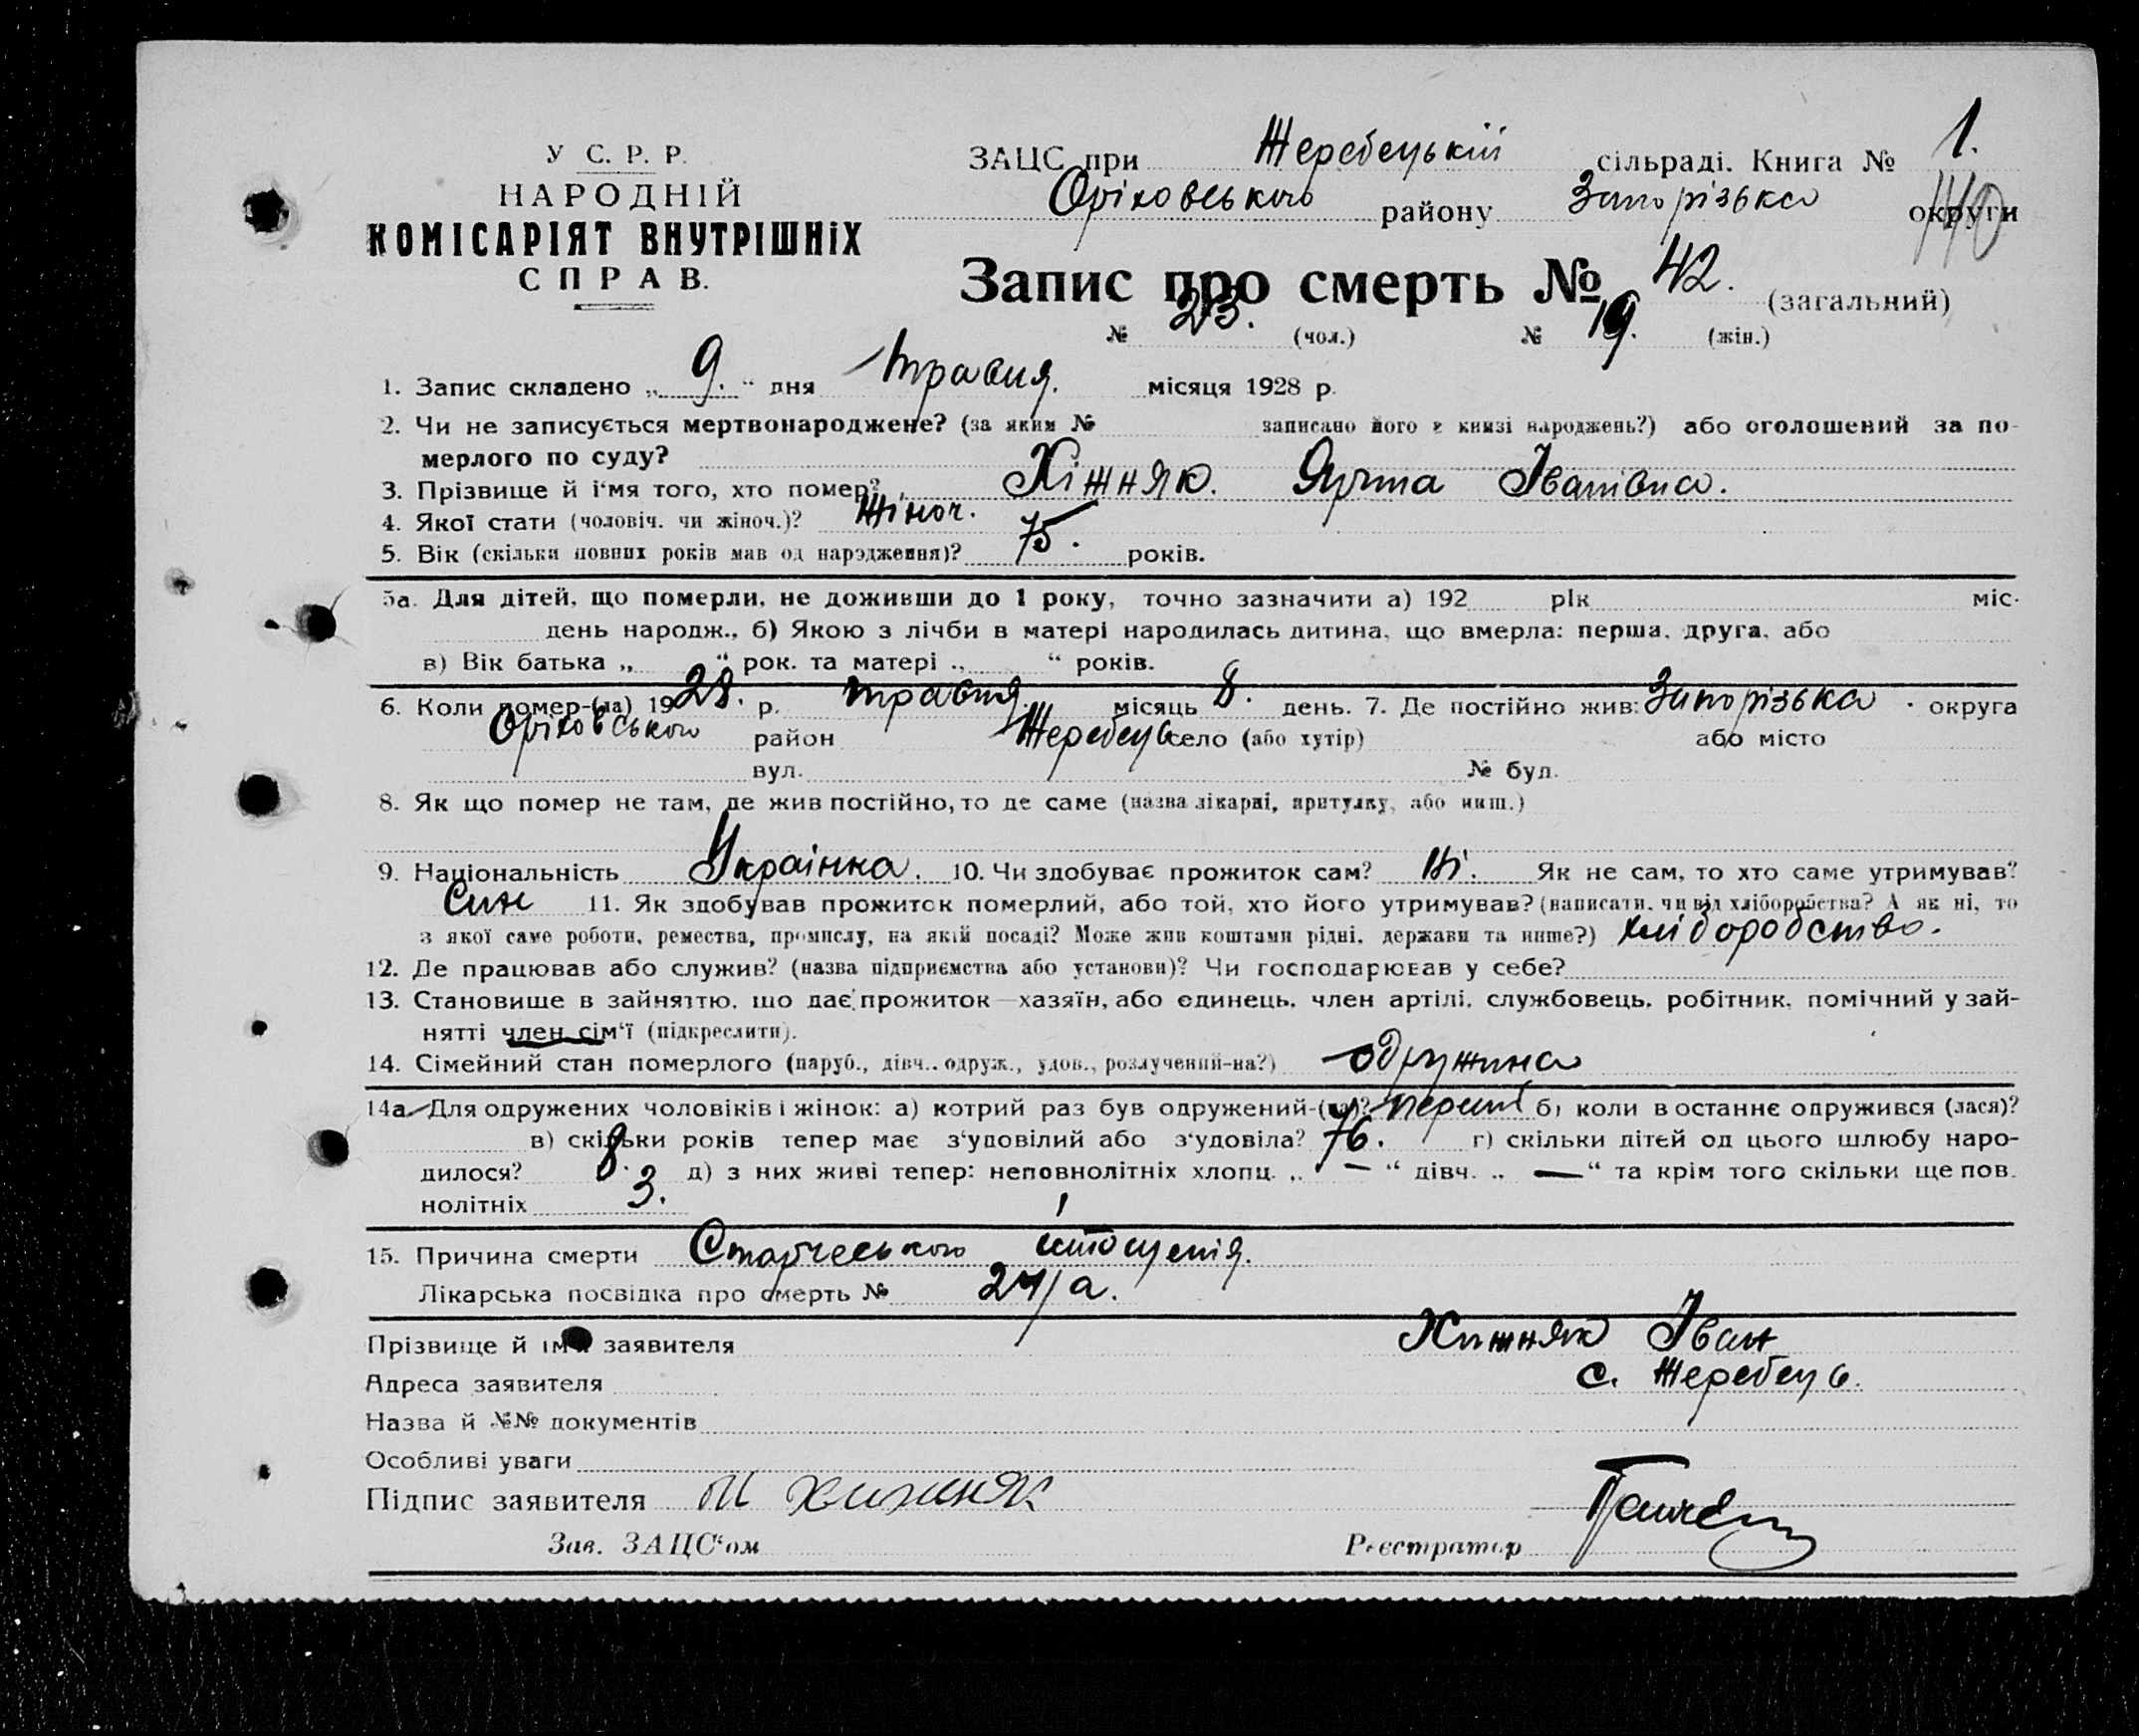 У С. Р. Р.
НАРОДНІЙ
КОМІСАРІЯТ ВНУТРІШНІХ
СПРАВ.
ЗАЦС при Жеребецькій сільраді. Книга № 1.
Оріховського району Запорізька округи
140
Запис про смерть № 42. (загальний)
№ 23. (чол.) № 19. (жін.)
1. Запис складено „ 9. “ дня травня. місяця 1928 р.
2. Чи не записується мертвонароджене? (за яким № записано його в книзі народжень?) або оголошений за по-
мерлого по суду?
3. Прізвище й і'мя того, хто помер? Хіжняк. Іванівна.
4. Якої стати (чоловіч. чи жіноч.)? Жіноч.
5. Вік (скільки повних років мав од народження)? 75. років.
5а. Для дітей, що померли, не доживши до 1 року, точно зазначити а) 192 рік міс.
день народж., б) Якою з лічби в матері народилась дитина, що вмерла: перша, друга, або
в) Вік батька „ “ рок. та матері „ “ років.
6. Коли помер-(ла) 1928. р. травня місяць 8. день. 7. Де постійно жив: Запорізька округа
Оріховського район Жеребець село (або хутір) або місто
вул. № буд.
8. Як що помер не там, де жив постійно, то де саме (назва лікарні, притулку, або инш.)
9. Національність Українка. 10. Чи здобуває прожиток сам? Ні. Як не сам, то хто саме утримував?
Син 11. Як здобував прожиток померлий, або той, хто його утримував? (написати, чи від хліборобства? А як ні, то
з якої саме роботи, ремества, промислу, на якій посаді? Може жив коштами рідні, держави та инше?) хліборобство.
12. Де працював або служив? (назва підприємства або установи)? Чи господарював у себе?
13. Становище в зайняттю, що дає прожиток—хазяїн, або єдинець, член артілі, службовець, робітник, помічний у зай-
нятті член сім'ї (підкреслити).
14. Сімейний стан померлого (паруб., дівч., одруж., удов., розлучений-на?) одружина
14а. Для одружених чоловіків і жінок: а) котрий раз був одружений-(на)? перший б) коли в останнє одружився (лася)?
в) скільки років тепер має з'удовілий або з'удовіла? 76. г) скільки дітей од цього шлюбу наро-
дилося? 8. д) з них живі тепер: неповнолітніх хлопц. „ — “ дівч. „ — “ та крім того скільки ще пов.
нолітніх 3.
15. Причина смерти Старческого істощенія.
Лікарська посвідка про смерть № 24/а.
Прізвище й ім'я заявителя Хижняк Іван
Адреса заявителя с. Жеребець.
Назва й №№ документів
Особливі уваги
Підпис заявителя Хижняк
Зав. ЗАЦС'ом Реєстратор